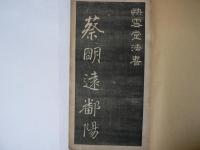 快雪堂法書
蔡明遠鄱陽